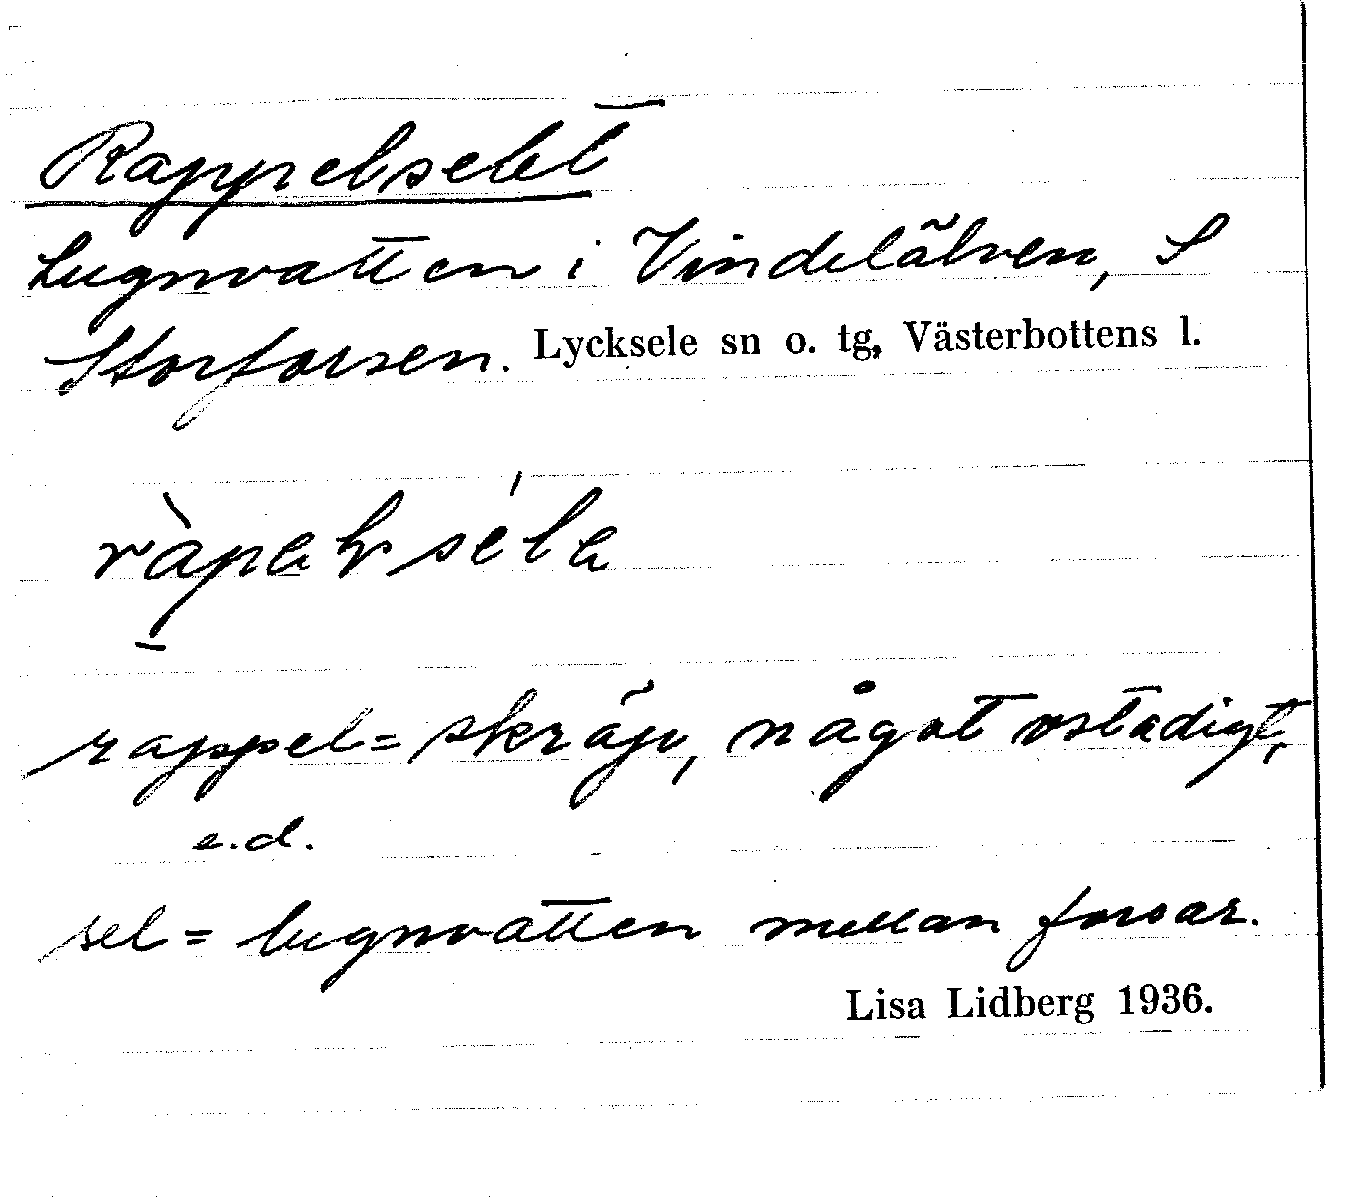 Rappelselet
Lugnvatten i Vindelälven, S
Storforsen. Lycksele sn o. tg, Västerbottens l.
rappel = skräp, något ostadigt,
e.d.
sel = lugnvatten mellan forsar.
Lisa Lidberg 1936.